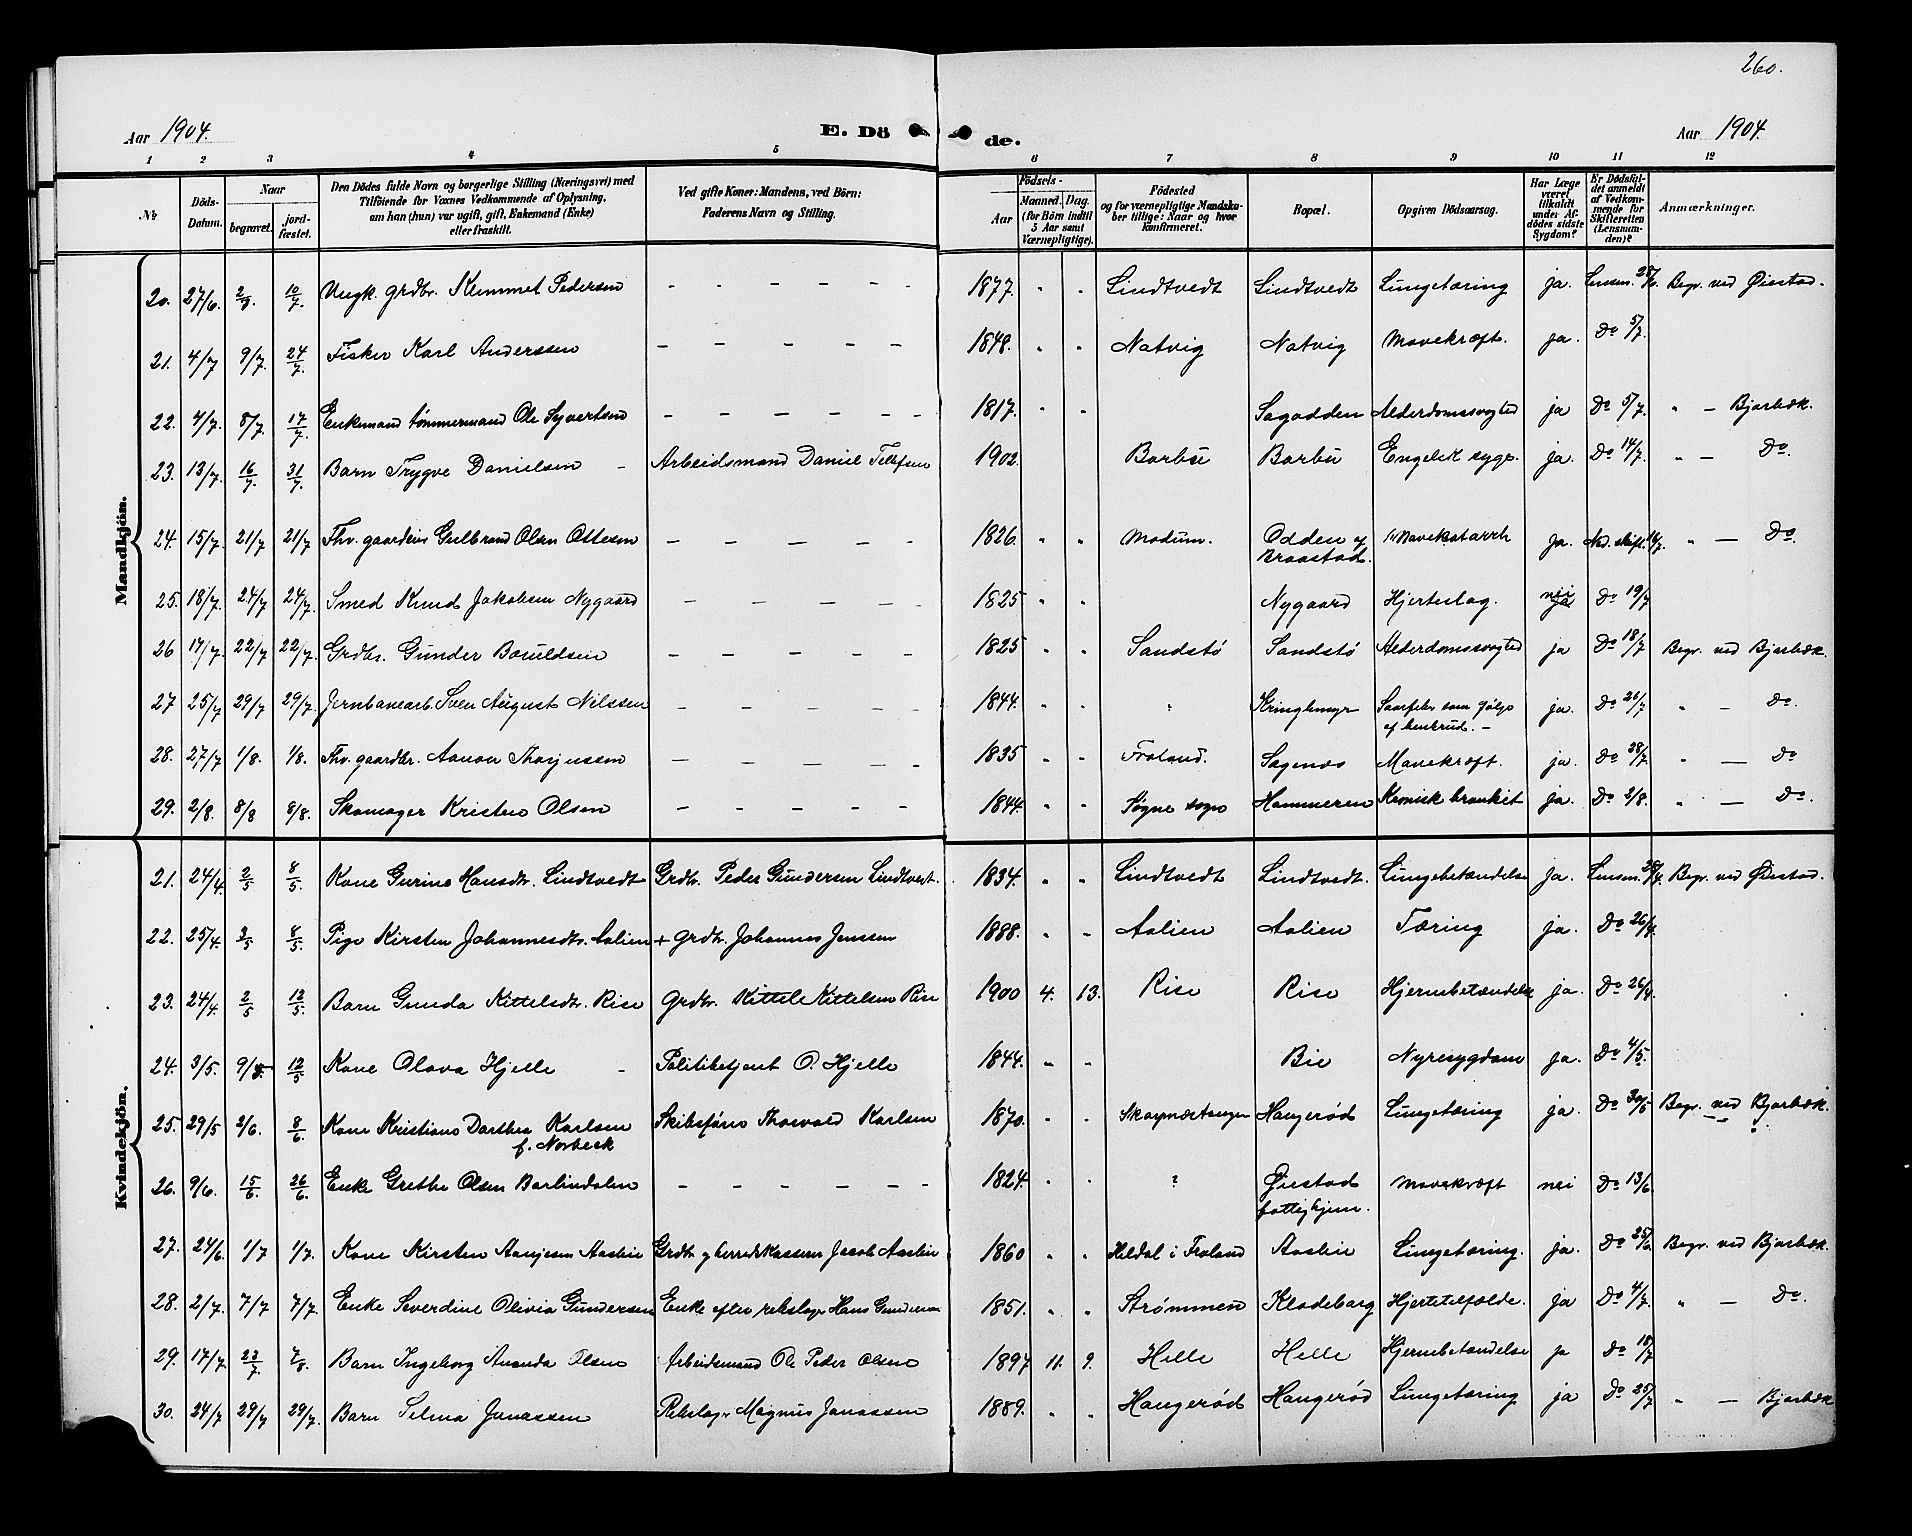 260.
Aar 1904.
E. Dö
de.
Aar 1904.
1 2 3 4 5 6 7 8 9 10 11 12
No
Döds-Datum.
Naar
begravet.
jord-fæstet.
Den Dödes fulde Navn og borgerlige Stilling (Næringsvei) med
Tilföiende for Voxnes Vedkommende af Oplysning,
om han (hun) var ugift, gift, Enkemand (Enke)
eller fraskilt.
Ved gifte Koner: Mandens, ved Börn:
Faderens Navn og Stilling.
Födsels-
Aar
Maaned. Dag.
(for Börn indtil
5 Aar samt
Værnepligtige).
Födested
og for værnepligtige Mandska-
ber tillige: Naar og hvor
konfirmeret.
Bopæl.
Opgiven Dödsaarsag.
Har Læge
været
tilkaldt
under Af-
dödes sidste
Sygdom?
Er Dödsfal-
det anmeldt
af Vedkom-
mende for
Skifteretten
(Lensman-
den)?
Anmærkninger.
Mandkjön.
20. 27/6 2/7 10/7 Ungk. grdbr. Kummet Pedersen – – – – – 1877. " " Lindtvedt Lindtvedt Lungetæring ja. Lensm. 28/6 Begr. ved Øiestad.
21. 4/7 9/7. 24/7 Fisker Karl Anderssen – – – – – 1848. " " Natvig Natvig Mavekræft. ja. Do 5/7.
22. 4/7. 8/7. 17/7 Enkemand tømmermand Ole Syvertsen – – – – – 1817. " " Sagodden Alderdomssvaghed ja Do 5/7. " – Bjorbæk.
23. 13/7 16/7 31/7 Barn Trygve Danielsen – Arbeidsmand Daniel Tellefsen 1902. Barbu Barbu Engelsk syge. ja. Do 14/7. " – Do.
24. 15/7. 21/7 21/7 Fhv. gaardeier Gulbrand Olsen Ottesen – – – – – 1826. " " Modum. Odden af Braastad. Mavekatarrh ja. 16/7. " – Do
25. 18/7. 24/7 24/7. Smed Knud Jakobsen Nygaard – – – – – 1825 " " Nygaard Hjerteslag. nei Do 19/7
26 17/7. 22/7 22/7. Grdbr. Gunder Baruldsen – – – – – 1825 " " Sandstø Sandstø Alderdomssvaghed ja Do 18/7 Begr. ved Bjorbæk.
27 25/7 29/7 29/7. Jernbanearb. Sven August Nilssen – – – – – 1844. " " " Kringlemyr Saarfeber som følge af benbrud. – ja. Do 26/7 " – Do.
28. 27/7 1/8. 1/8. Fhv. gaardbr. Aanon Thorjussen – – – – – 1835 " " Froland. Sagenes Mavekræft. ja. Do 28/7 " – Do
29. 2/8. 8/8 8/8. Skomager Kristen Olsen – – – – – 1844. " " Søgne sogn Hammeren Kronisk bronkit ja. Do 2/8. " – Do.
Kvindekjön.
21. 24/4. 2/5 8/5. Kone Gurine Hansdtr. Lindtvedt Grdbr. Peder Gundersen Lindtvedt. 1834. " " Lindtvedt Lindtvedt. Lungebetændelse ja. Lensm. 28/4. Begr. ved Øiestad.
22. 25/4. 3/5 8/5. Pige Kirsten Johannesdtr. Aalien + grdbr. Johannes Jenssen 1888. " " Aalien Aalien Tæring ja. Do 26/4.
23. 24/4. 2/5 12/5. Barn Gunda Kittelsdtr. Rise grdbr. Kittel Kittelsen Rise 1900 4. 13. Rise Rise Hjernebetændelse ja. Do 26/4.
24. 3/5. 9/5. 12/5 Kone Olava Hjelle – Politibetjent O. Hjelle 1844. " " Bie Nyresygdom ja. Do 4/5.
25. 29/5 2/6. 8/6. Kone Kristiane Dorthea Karlsen f. Norbeck Skibsfører Thorvald Karlsen 1870. " " Skarpnæstangen Haugerød Lungetæring ja. Do 30/5 Begr. ved Bjorbæk.
26. 9/6. 15/6. 26/6 Enke Grethe Olsen Barlindalen – – – – – 1824. " " ? Øiestad fattighjem. Mavekræft nei Do 13/6
27. 24/6. 1/7 1/7. Kone Kirsten Aanjesen Aaslien Grdbr. og herredskasserer Jacob Aaslien 1860 " " Heldal i Froland Aaslien Lungetæring. ja. Do 25/6. Begr. ved Bjorbæk.
28. 2/7. 7/7 7/7. Enke Severdine Olivia Gundersen Enke efter rebslager Hans Gundersen 1851. " " Strømmen Klodeborg Hjertetilfælde. ja Do 4/7. " – Do.
29. 17/7. 23/7 7/8. Barn Ingeborg Amanda Olsen Arbeidsmand Ole Peder Olsen 1897 11. 9. Helle Helle Hjernebetændelse ja Do 18/7
30. 24/7 29/7 29/7. Barn Selma Jonassen Rebslager Magnus Jonassen 1889. " " Haugerød Haugerød Lungetæring ja Do 25/7 " – Bjorbæk